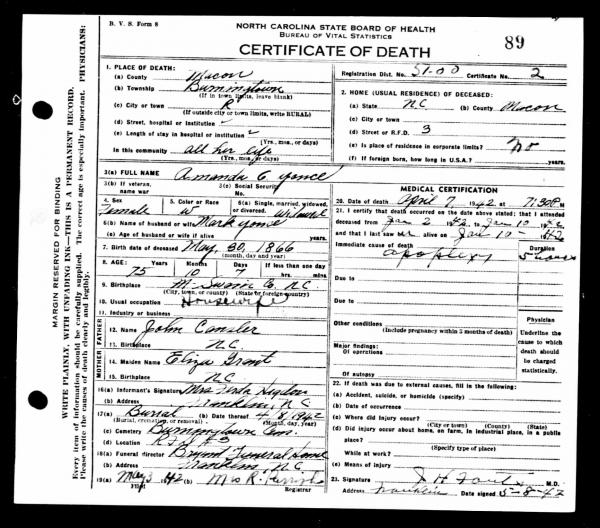 B. V. S. Form 8
NORTH CAROLINA STATE BOARD OF HEALTH
BUREAU OF VITAL STATISTICS
CERTIFICATE OF DEATH
89
MARGIN RESERVED FOR BINDING
WRITE PLAINLY, WITH UNFADING INK—THIS IS A PERMANENT RECORD.
Every item of information should be carefully supplied. The correct age is especially important. PHYSICIANS:
Please write the causes of death clearly and legibly.
Registration Dist. No. 51-00 Certificate No. 2
1. PLACE OF DEATH:
(a) County Macon
(b) Township Burningtown
(If in town limits, leave blank)
(c) City or town R
(If outside city or town limits, write RURAL)
(d) Street, hospital or institution
(e) Length of stay in hospital or institution
(Yrs., mos., or days)
In this community all her life
(Yrs., mos., or days)
2. HOME (USUAL RESIDENCE) OF DECEASED:
(a) State N.C. (b) County Macon
(c) City or town
(d) Street or R.F.D. 3
(e) Is place of residence in corporate limits? No
(f) If foreign born, how long in U.S.A.? years.
3(a) FULL NAME Amanda C. Yonce
3(b) If veteran, name war
3(c) Social Security No.
4. Sex Female
5. Color or Race W
6(a) Single, married, widowed, or divorced. Widowed
6(b) Name of husband or wife Mark Yonce
(c) Age of husband or wife if alive
7. Birth date of deceased May 30, 1866
(month, day and year)
8. AGE: 75 10 7 If less than one day
hrs. min.
9. Birthplace Swain Co. N.C.
(City, town, or county) (State or foreign country)
10. Usual occupation Housewife
11. Industry or business
FATHER
12. Name John Cansler
13. Birthplace N.C.
MOTHER
14. Maiden Name Eliza Grant
15. Birthplace N.C.
16(a) Informant's Signature Mrs.
(b) Address Franklin, N.C.
17(a) Burial (b) Date thereof 4/8/1942
(Burial, cremation, or removal) (Month, day, year)
(c) Cemetery Burningtown Cem.
(d) Location R.F.D. #3
18(a) Funeral director Bryant Funeral Home
(b) Address Franklin, N.C.
19(a) May 3 42 (b) Mrs R.
Filed Registrar
MEDICAL CERTIFICATION
20. Date of death April 7, 1942 7:30 P.M.
21. I certify that death occurred on the above stated; that I attended
deceased from Jan 2 42 to Jan 10 42
and that I last saw alive on Jan 10 42
Immediate cause of death apoplexy
Duration
Due to
Due to
Other conditions
(Include pregnancy within 3 months of death)
Major findings:
Of operations
Of autopsy
Physician
Underline the cause to which death should be charged statistically.
22. If death was due to external causes, fill in the following:
(a) Accident, suicide, or homicide (specify)
(b) Date of occurrence
(c) Where did injury occur?
(City or town) (County) (State)
(d) Did injury occur about home, on farm, in industrial place, in a public place?
While at work?
(Specify type of place)
(e) Means of injury
23. Signature M.D.
Address Franklin Date signed 5-8-42